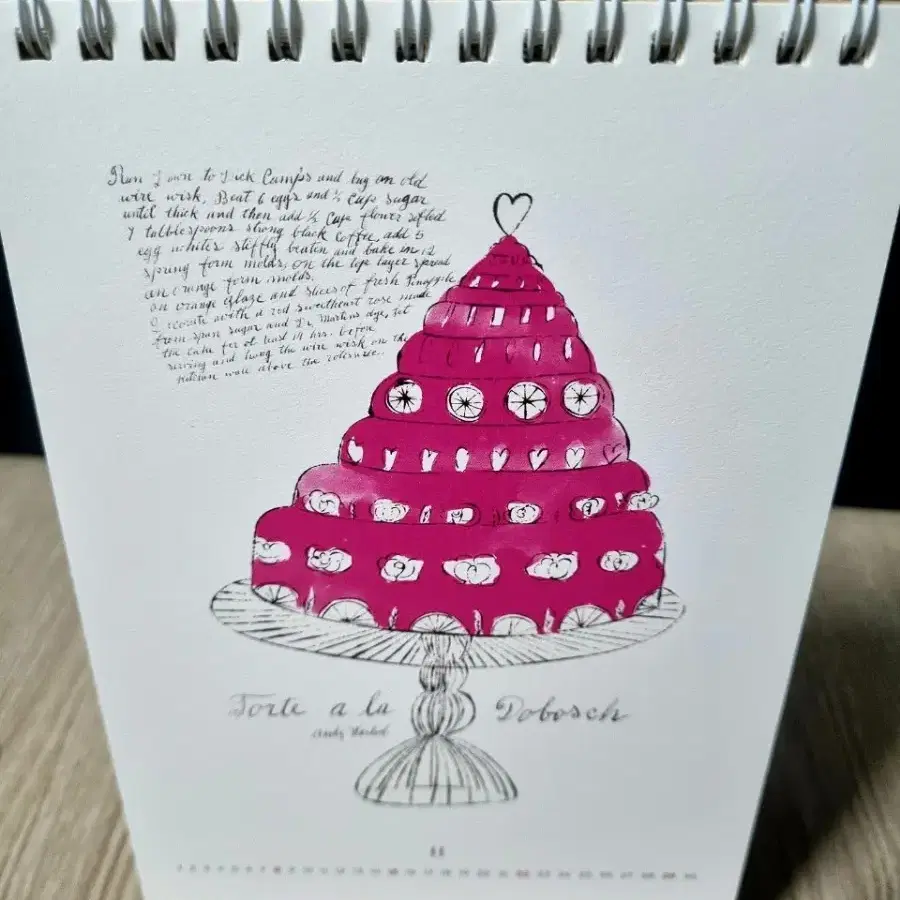 Run down to Dick Camp's and buy an old
wire wisk. Beat 6 eggs and ½ cup sugar
until thick and then add ½ cup flower sifted
7 tablbespoons strong black coffee, add 5
egg whites stiffly beatin and bake in 12
spring form molds, on the top layer spread
an orange form molds.
on orange glaze and slices of fresh Pineapple
with a red sweetheart rose made
from spun sugar and Dr. Martins dye, let
the cake for at least 14 hrs. before
serving and hang the wire wisk on the
kitchen wall above the rotissare..
Torte a la Dobosch
Andy Warhol
11